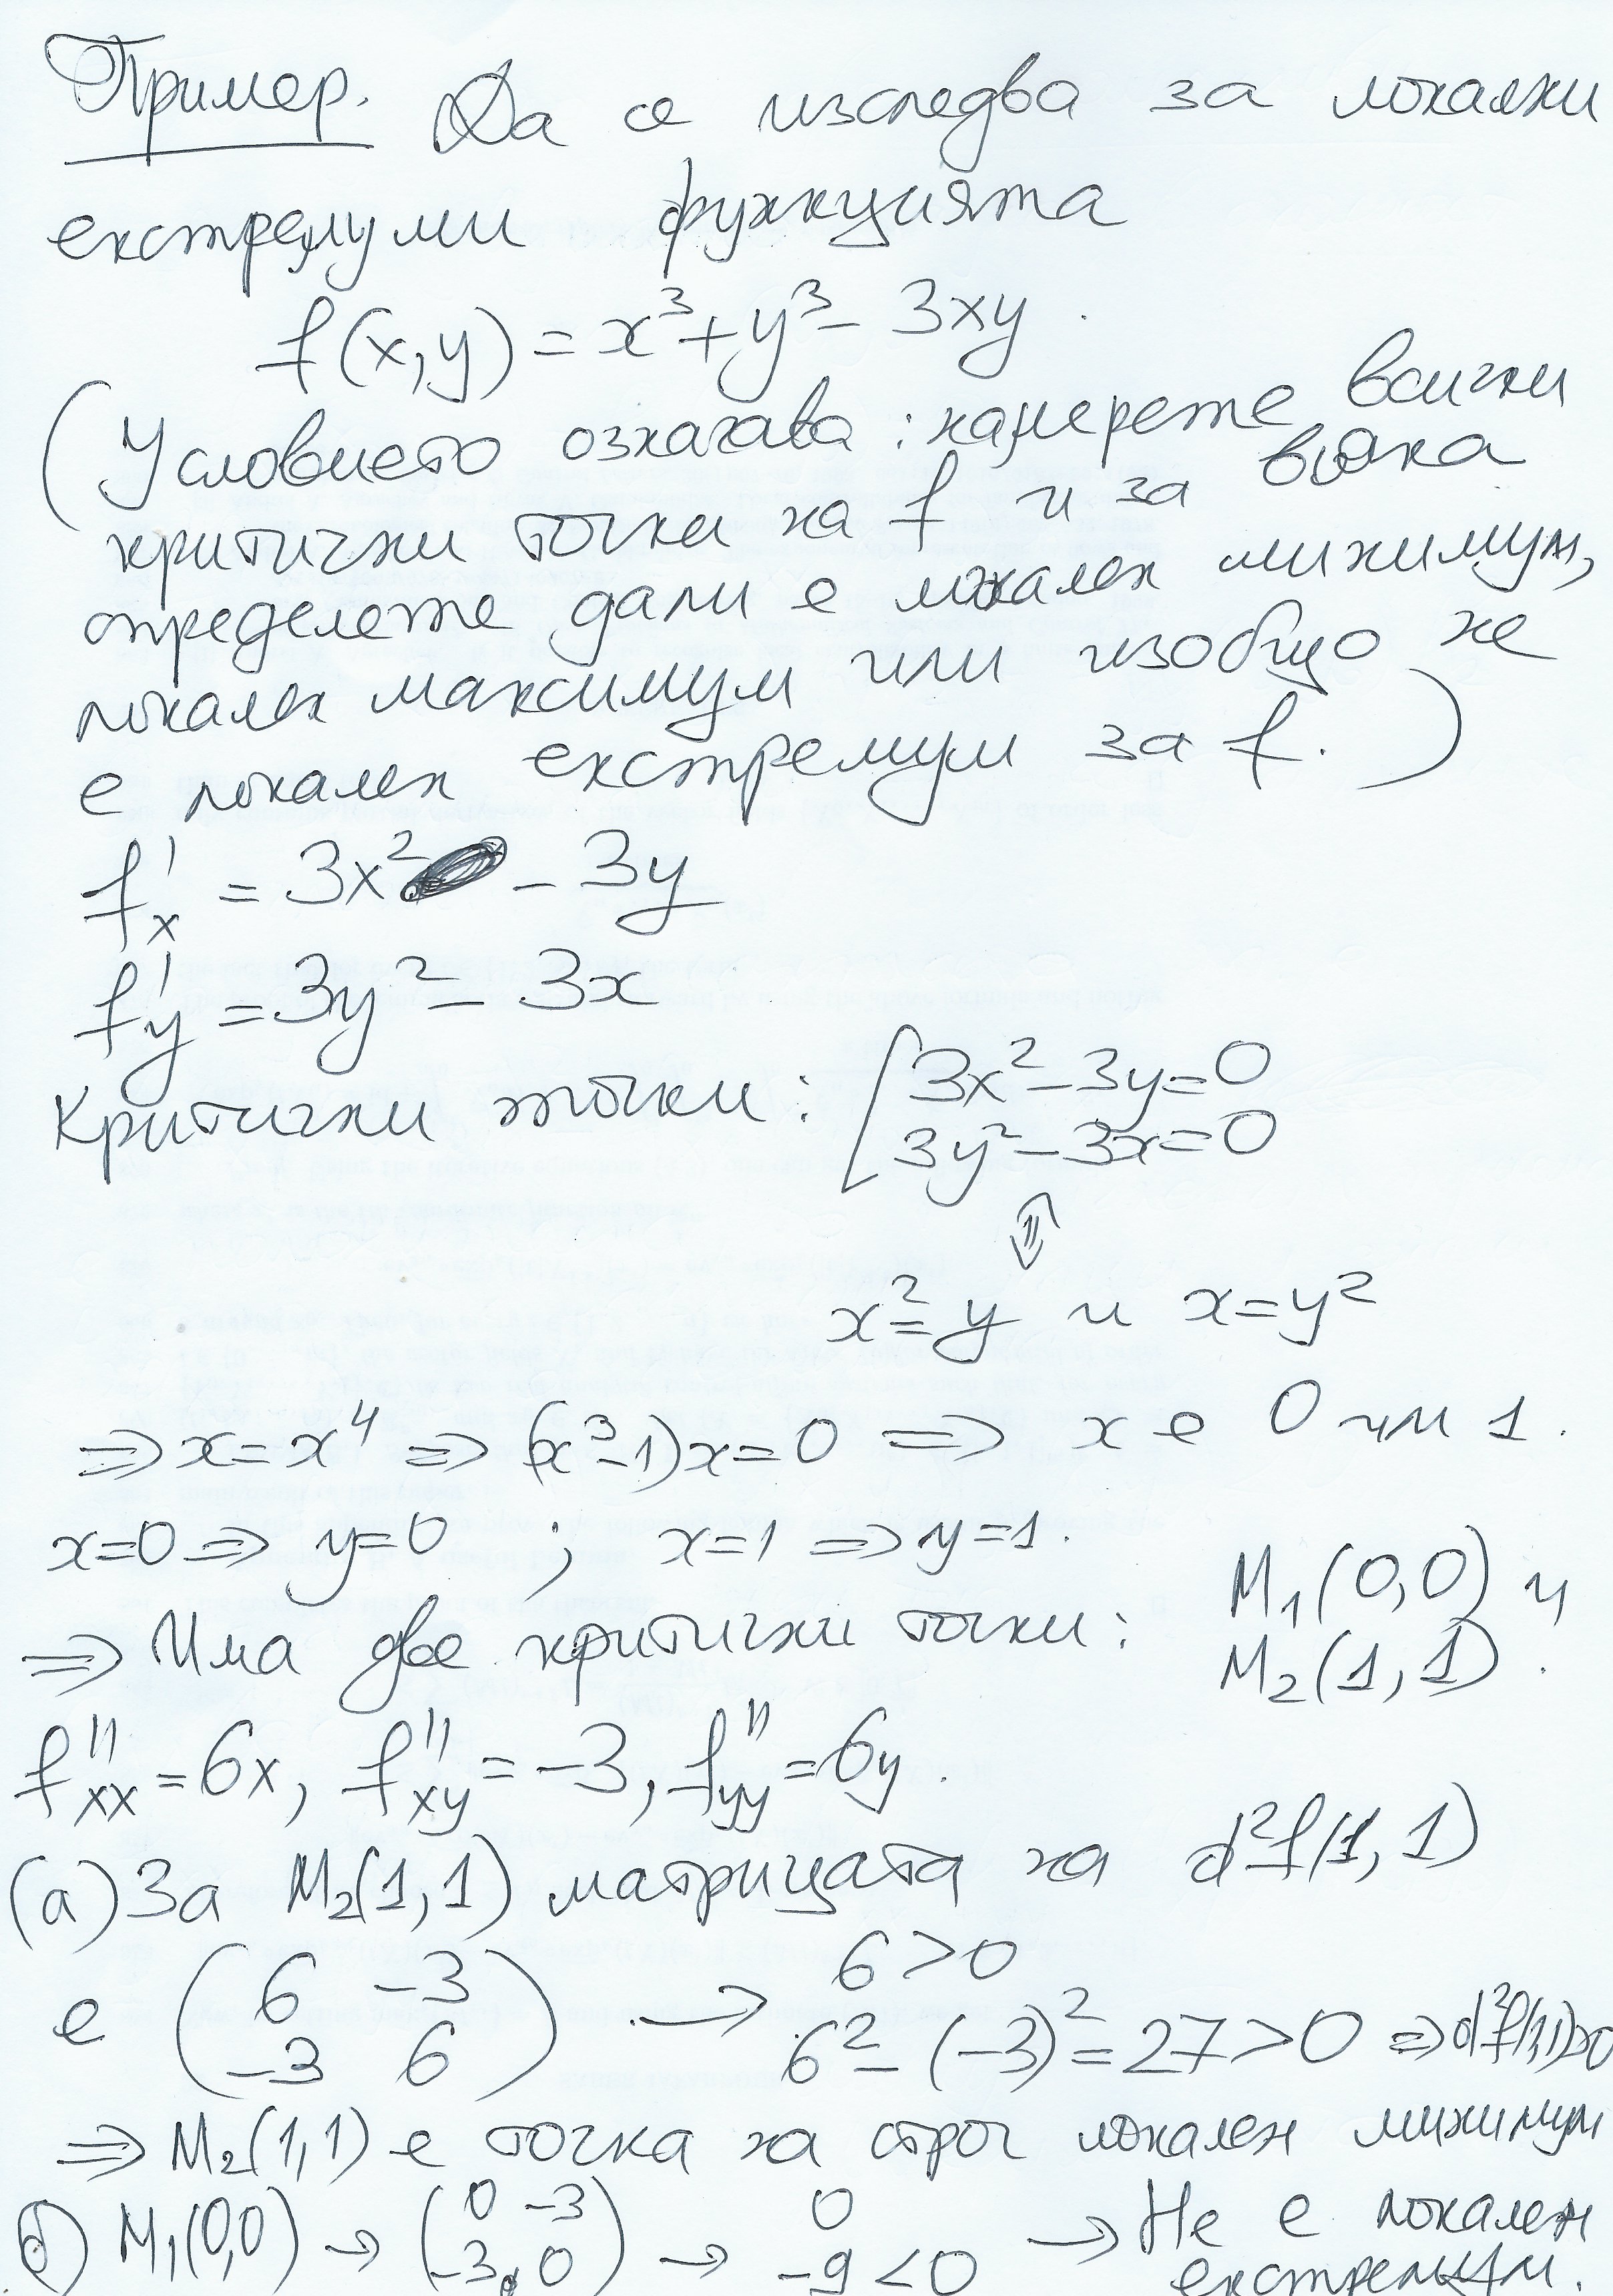 Пример. Да се изследва за локални
екстремуми функцията
f(x,y) = x³+y³- 3xy.
(Условието означава: намерете всички
критични точки на f и за всяка
определете дали е локален минимум,
локален максимум или изобщо не
е локален екстремум за f.)
f'x = 3x² - 3y
f'y = 3y² - 3x
Критични точки: { 3x²-3y=0
3y²-3x=0
⇕
x²=y и x=y²
⇒ x=x⁴ ⇒ (x³-1)x=0 ⇒ x е 0 или 1.
x=0 ⇒ y=0 ; x=1 ⇒ y=1.
⇒ Има две критични точки: M₁(0,0) и
M₂(1,1).
f''xx = 6x, f''xy = -3, f''yy = 6y.
(а) За M₂(1,1) матрицата на d²f(1,1)
е ( 6 -3
-3 6 ) → 6>0
6²-(-3)²=27>0 ⇒ d²f(1,1)>0
⇒ M₂(1,1) е точка на строг локален минимум
б) M₁(0,0) → ( 0 -3
-3 0 ) → 0
-9<0 → Не е локален
екстремум.